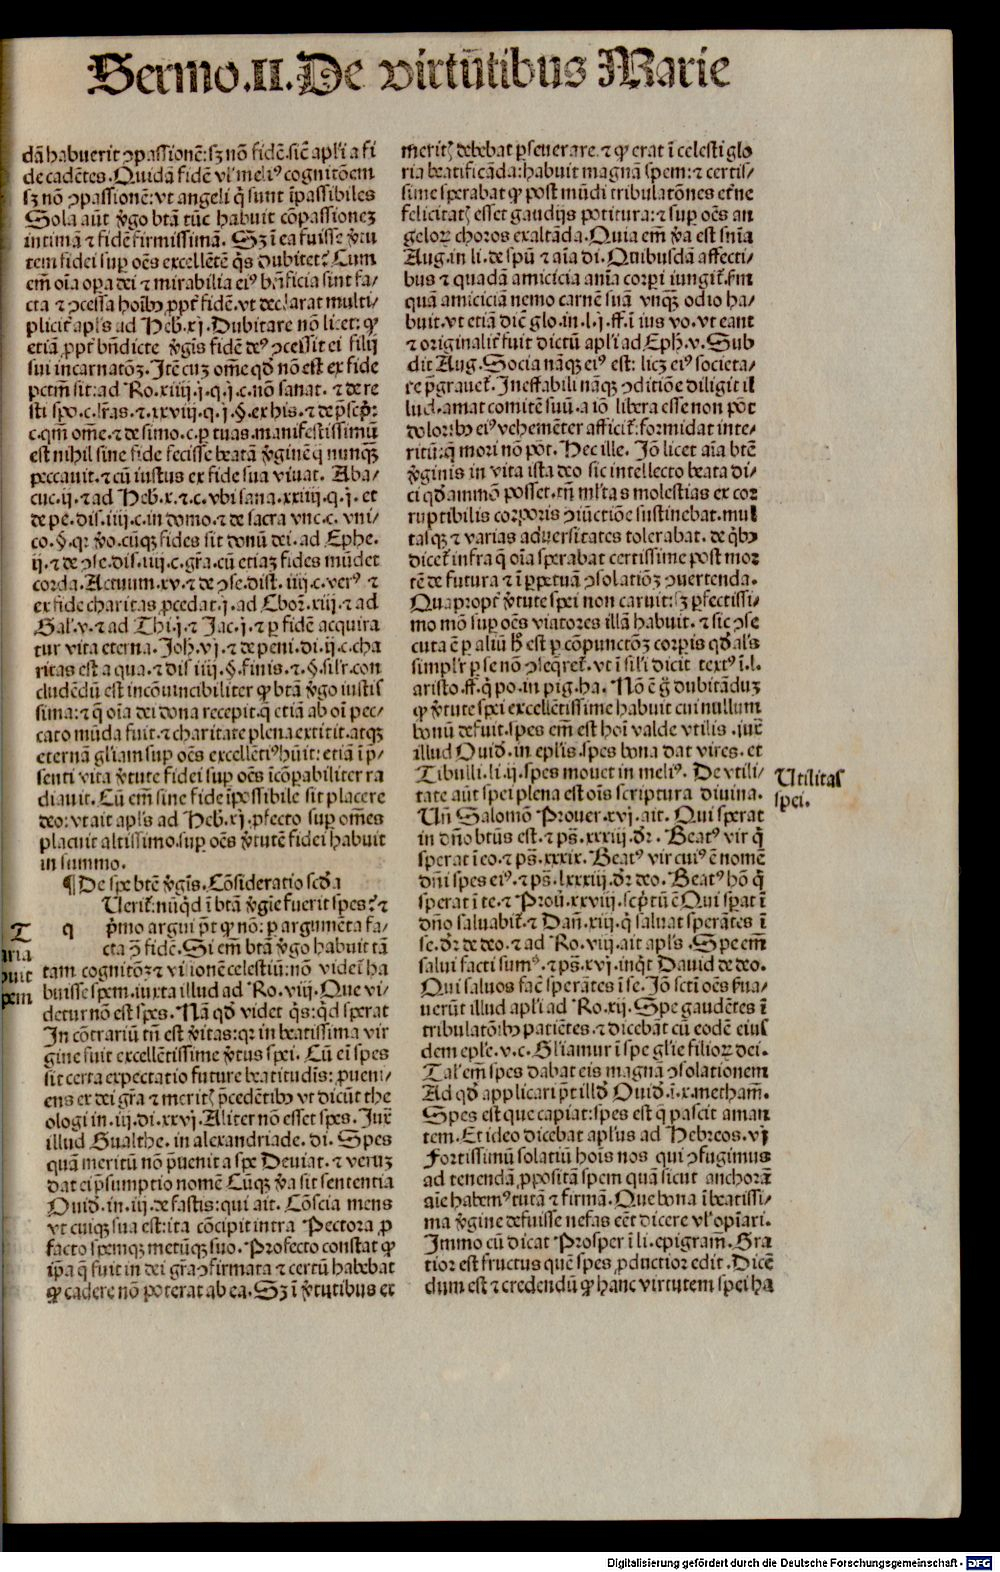 Sermo.II.De virtūtibus Marie
dā habuerit ꝯpassionē:sꝫ nō fidē.sic̄ apl'i a fi
de cadētes.Quidā fidē vl' meliꝰ cognitōem
sꝫ nō ꝯpassionē:vt angeli q̄ sunt īpassibiles
Sola aūt v̄go btā tūc habuit cōpassionez
intimā ⁊ fidē firmissimā. Sꝫ ī ea fuisse v̄tu
tem fidei suꝑ oēs excellētē q̄s dubitet? Cum
em̄ oīa oꝑa dei ⁊ mirabilia eiꝰ bn̄ficia sint fa⸗
cta ⁊ ꝯcessa hoībꝰ ꝓpt̄ fidē.vt declarat multi⸗
plicit̄ apl's ad Heb.xj.Dubitare nō licet: ꝙ
etiā ꝓpt̄ bn̄dicte v̄gīs fidē deꝰ ꝯcessit ei filij
sui incarnatōꝫ.Itē cuꝫ om̄e qd̄ nō est ex fide
pctm̄ sit:ad Ro.xiiij.⁊.q.j.c.nō sanat. ⁊ de re
sti spo.c.lr̄as.⁊.xxviij.q.j.§.ex his.⁊ de p̄scp̄:
c.qm̄ om̄e.⁊ de simo.c.ꝑ tuas.manifestissimū
est nihil sine fide fecisse beatā v̄ginē q̄ nunqꝫ
peccauit.⁊ cū iustus ex fide sua viuat. Aba⸗
cuc.ij.⁊ ad Heb.x.⁊.c. vbi sana.xxiiij.q.j. et
de pe.dis.iiij.c.in domo.⁊ de sacra vnc.c. vni⸗
co.§.qꝛ v̄o.cūqꝫ fides sit donū dei.ad Ephe.
ij.⁊ de ꝯse.dis.iiij.c.gr̄a.cū etiaꝫ fides mūdet
corda.Actuum.xv.⁊ de ꝯse.dist. iiij.c.verꝰ. ⁊
ex fide charitas ꝓcedat.j.ad Choꝛ.xiij.⁊ ad
Gal'.v.⁊ ad Thi.j.⁊ Jac.j.⁊ ꝑ fidē acquira
tur vita eterna. Joh.vj.⁊ de peni.di.ij.c.cha
ritas est aqua.⁊ dis.iiij.§.finis.⁊.§.sil'r.con
cludēdū est incōuincibiliter ꝙ btā v̄go iustis
sima:⁊ q̄ oīa dei dona recepit.q̄ etiā ab oī pec⸗
cato mūda fuit.⁊ charitate plena extitit.atqꝫ
eternā gl'iam suꝑ oēs excellētiꝰ hūit: etiā ī p̄⸗
senti vita v̄tute fidei suꝑ oēs īcōꝑabiliter ra
diauit. Cū em̄ sine fide īpossibile sit placere
deo:vt ait apl's ad Heb.xj.ꝓfecto suꝑ om̄es
placuit altissimo.suꝑ oēs v̄tutē fidei habuit
in summo.
¶De spe btē v̄gīs.Cōsideratio scd̄a
Uerit̄.nūqd̄ ī btā v̄gīe fuerit spes?⁊
q p̄mo argui pt̄ ꝙ nō: ꝑ argumēta fa⸗
cta ꝯ̄ fidē. Si em̄ btā v̄go habuit tā
tam cognitōꝫ ⁊ visionē celestiū:nō videt̄ ha
buisse spem.iuxta illud ad Ro.viij.Que vi⸗
detur nō est spes. Nā qd̄ videt q̄s:qd sperat
In cōtrariū tn̄ est v̄itas:qꝛ in beatissima vir
gine fuit excellētissime v̄tus spei. Cū em̄ spes
sit certa expectatio future beatitudīs:ꝓueni⸗
ens ex dei gr̄a ⁊ meritꝭ p̄cedētibꝰ vt dicūt the
ologi in.iij.di.xxvj.Aliter nō esset spes. Juxͭ
illud Gualthe.in alexandriade.di. Spes
quā meritū nō p̄uenit a spe Deuiat.⁊ veruꝫ
dat ei p̄sumptio nomē Cūqꝫ v̄a sit sententia
Ouid.in.iij.de fastis:qui ait. Cōscia mens
vt cuiqꝫ sua est:ita cōcipit intra Pectora ꝓ
facto spemqꝫ metūqꝫ suo. Profecto constat ꝙ
ip̄a q̄ fuit in dei gr̄a ꝯfirmata ⁊ certū habebat
ꝙ cadere nō poterat ab ea.Sꝫ ī v̄tutibus ex
T
aria
buit
pem
meritꝭ debebat ꝑseuerare.⁊ ꝙ erat ī celesti glo
ria beatificāda:habuit magnā spem:⁊ certis⸗
sime sperabat ꝙ post mūdi tribulatōnes et̄ne
felicitatꝭ esset gaudijs potitura:⁊ suꝑ oēs an
geloꝝ choros exaltāda.Quia em̄ v̄a est sn̄ia
Aug.in li.de spū ⁊ aīa di.Quibusdā affecti⸗
bus ⁊ quadā amicicia anīa corꝑi iungit̄.ẜm
quā amiciciā nemo carnē suā vnqꝫ odio ha⸗
buit.vt etiā dic̄ glo.in.l.j.ff.ī ius vo.vt eant
⁊ originalit̄ fuit dictū apl'i ad Eph.v.Sub
dit Aug.Socia nāqꝫ eiꝰ est: licꝫ eiꝰ societa⸗
te p̄grauet̄.Ineffabili nāqꝫ ꝯditiōe diligit il
lud.amat comitē suū.a iō libera esse non pōt
doloribꝰ eiꝰ vehemēter afficit̄:formidat inte⸗
ritū:q̄ mori nō pōt.Hec ille. Jō licet aīa btē
v̄ginis in vita ista deo sic intellecto beata di⸗
ci qd̄ammō posset.tn̄ ml'tas molestias ex cor
ruptibilis corporis ꝯiūctiōe sustinebat.mul
tasqꝫ ⁊ varias aduersitates tolerabat. de q̄bꝰ
dicet̄ infra q̄ oīa sperabat certissime post mor
tē de futura ⁊ ī ꝑpetuā ꝯsolatiōꝫ ꝯuertenda.
Quapropt̄ v̄tute spei non caruit:sꝫ ꝑfectissi⸗
mo mō suꝑ oēs viatores illā habuit.⁊ sic ꝯse
cuta ē ꝑ aliū h̄ est ꝑ cōpunctōꝫ corꝑis qd̄ al's
simpl'r ꝑ se nō ꝯseq̄ret̄.vt ī sil'i dicit textꝰ ī.l.
aristo.ff.q̄ po.in pig.ha. Nō ē g̊ dubitāduꝫ
ꝙ v̄tute spei excellētissime habuit cui nullum
bonū defuit.spes em̄ est hoī valde vtilis .iuxͭ
illud Ouid.in epl'is.spes bona dat vires. et
Tibulli.li.ij.spes mouet in meliꝰ. De vtili⸗
tate aūt spei plena est oīs scriptura diuina.
Un̄ Salomō Prouer.xvj.ait. Qui sperat
in dn̄o btūs est.⁊ ps̄.xxxiij.dr̄. Beatꝰ vir q̄
sperat ī eo.⁊ ps̄.xxxix. Beatꝰ vir cuiꝰ ē nomē
dn̄i spes eiꝰ.⁊ ps̄.lxxxiij.dr̄ deo. Beatꝰ hō q̄
sperat ī te.⁊ Prou̇.xxviij.scp̄tū ē Qui sꝑat ī
dn̄o saluabit̄.⁊ Dan̄.xiij.q̄ saluat sperātes ī
se.dr̄ de deo.⁊ ad Ro.viij.ait apl's .Spe em̄
salui facti sumꝰ.⁊ ps̄.xvj.inqt̄ Dauid de deo.
Qui saluos fac̄ sperātes ī se.Jō scti oēs ẜua⸗
uerūt illud apl'i ad Ro.xij. Spe gaudētes ī
tribulatōībꝰ patiētes.⁊ dicebāt cū eodē eius
dem epl'e.v.c.Gl'iamur ī spe gl'ie filioꝝ dei.
Tal' em̄ spes dabat eis magnā ꝯsolationem
Ad qd̄ applicari pt̄ illd̄ Ouid.ī.x.metham̄.
Spes est que capiat:spes est q̄ pascit aman
tem.Et ideo dicebat apl'us ad Hebreos.vj
Fortissimū solatiū hoīs nos qui ꝯfugimus
ad tenendā ꝓpositā spem quā sicut anchorā
aīe habemꝰ tutā ⁊ firmā.Que bona ī beatissi⸗
ma v̄gine defuisse nefas eēt dicere vl' opīari.
Immo cū dicat Prosper ī li.epigram̄. Gra
tior est fructus quē spes ꝓductior edit.Dicē
dum est ⁊ credendū ꝙ hanc virtutem spei ha
Utilitas
spei.
Digitalisierung gefördert durch die Deutsche Forschungsgemeinschaft - DFG